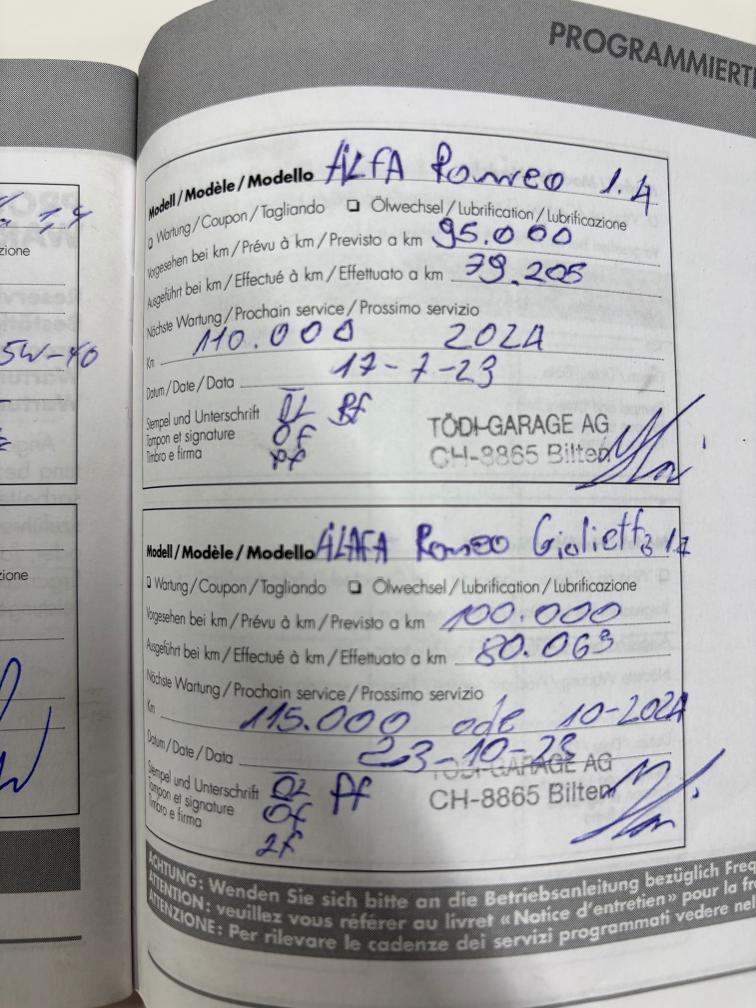 1,4
zione
5W-40
zione
PROGRAMMIERT
Modell/Modèle/Modello ALFA Romeo 1.4
❏ Wartung/Coupon/Tagliando ❏ Ölwechsel/Lubrification/Lubrificazione
Vorgesehen bei km/Prévu à km/Previsto a km 95.000
Ausgeführt bei km/Effectué à km/Effettuato a km 79.205
Nächste Wartung/Prochain service/Prossimo servizio
Km 110.000 2024
Datum/Date/Data 17-7-23
Stempel und Unterschrift
Tampon et signature
Timbro e firma
ÖL Pf
Of
Pf
TÖDI-GARAGE AG
CH-8865 Bilten
Modell/Modèle/Modello ALAFA Romeo Giulietta
❏ Wartung/Coupon/Tagliando ❏ Ölwechsel/Lubrification/Lubrificazione
Vorgesehen bei km/Prévu à km/Previsto a km 100.000
Ausgeführt bei km/Effectué à km/Effettuato a km 80.069
Nächste Wartung/Prochain service/Prossimo servizio
Km 115.000 ode 10-2024
Datum/Date/Data 23-10-23
Stempel und Unterschrift
Tampon et signature
Timbro e firma
ÖL Pf
Of
TÖDI-GARAGE AG
CH-8865 Bilten
ACHTUNG: Wenden Sie sich bitte an die Betriebsanleitung bezüglich Freq
ATTENTION: veuillez vous référer au livret «Notice d'entretien» pour la fr
ATTENZIONE: Per rilevare le cadenze dei servizi programmati vedere nel